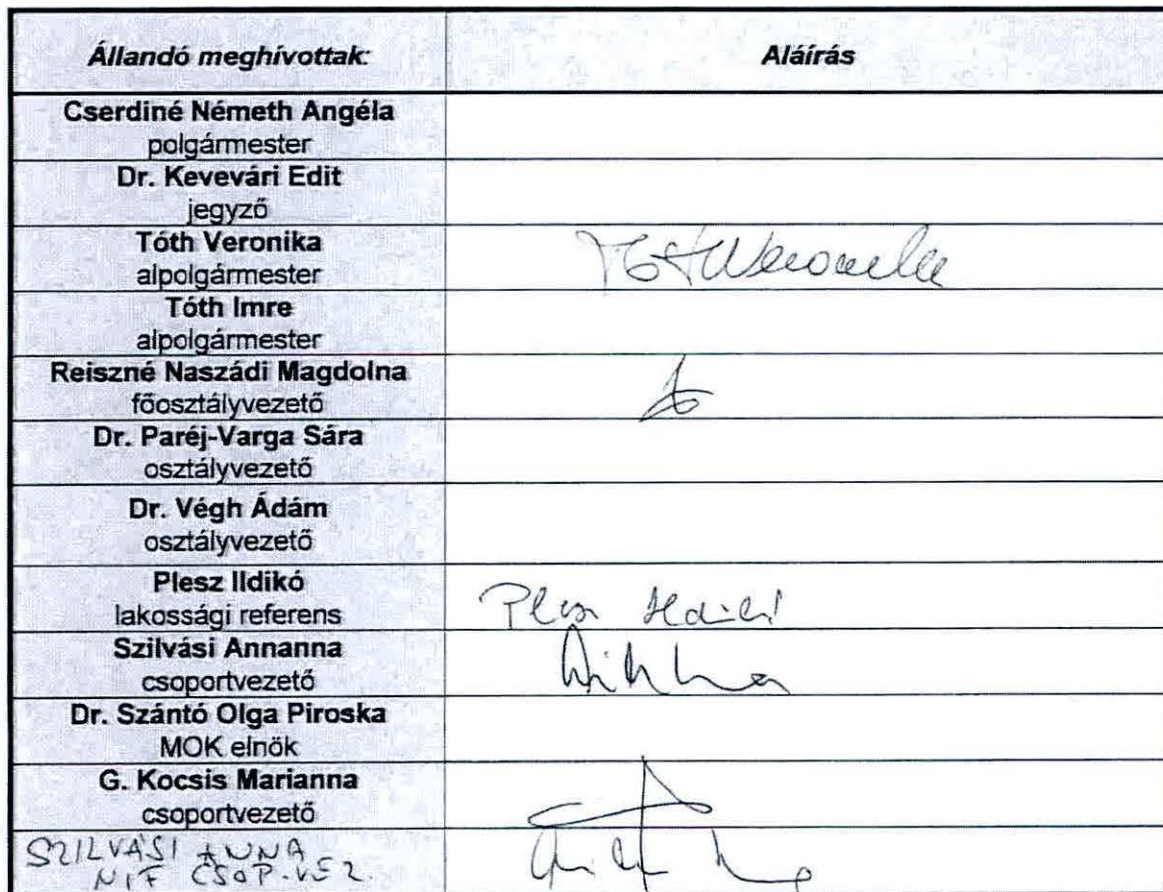 Állandó meghívottak:
Aláírás
Cserdiné Németh Angéla
polgármester
Dr. Kevevári Edit
jegyző
Tóth Veronika
alpolgármester
Tóth Imre
alpolgármester
Reiszné Naszádi Magdolna
főosztályvezető
Dr. Paréj-Varga Sára
osztályvezető
Dr. Végh Ádám
osztályvezető
Plesz Ildikó
lakossági referens
Szilvási Annanna
csoportvezető
Dr. Szántó Olga Piroska
MOK elnök
G. Kocsis Marianna
csoportvezető
SZILVÁSI ANNA
NIF CSOP.VEZ.